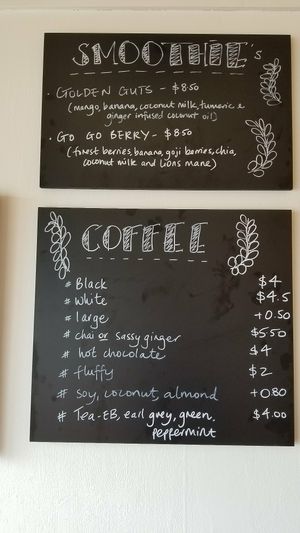 SMOOTHIE's
· GOLDEN GUTS - $8.50
(mango, banana, coconut milk, tumeric &
ginger infused coconut oil)
· GO GO BERRY - $8.50
(forest berries, banana, goji berries, chia,
coconut milk and lions mane)
COFFEE
# Black $4
# White $4.5
# large +0.50
# chai or sassy ginger $5.50
# hot chocolate $4
# fluffy $2
# Soy, coconut, almond +0.80
# Tea-EB, earl grey, green, $4.00
peppermint